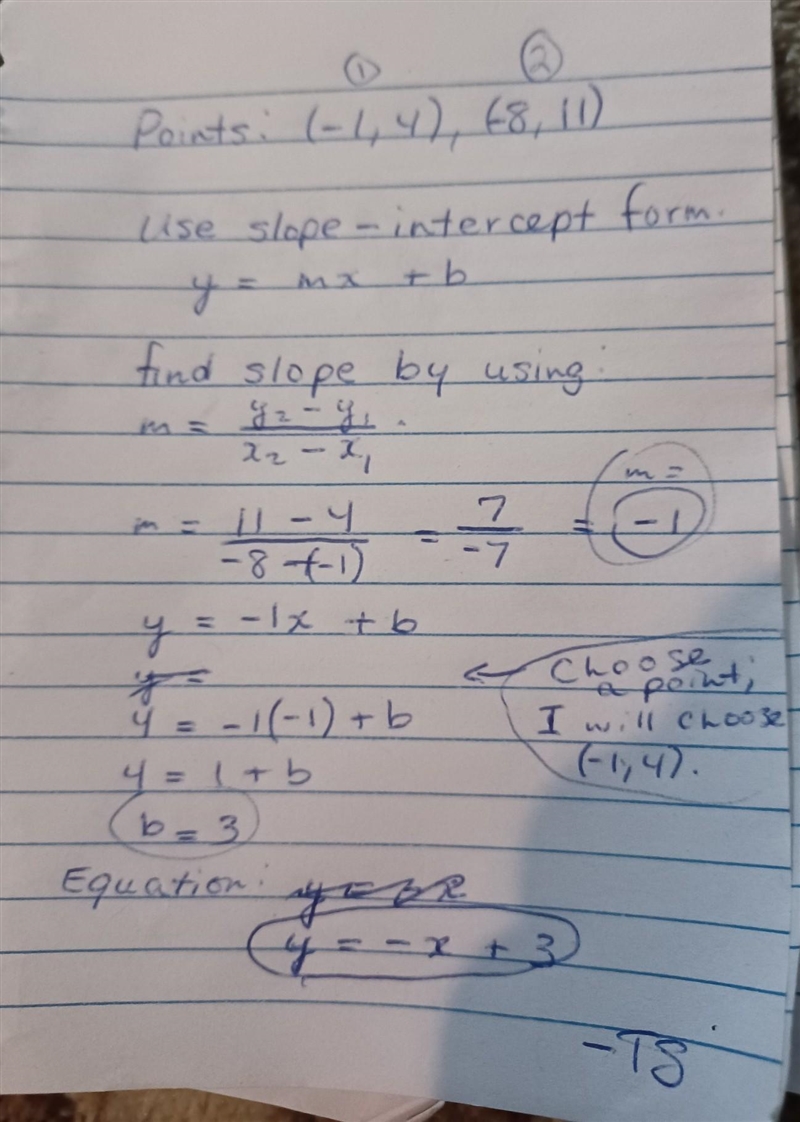 ① ②
Points: (-1, 4), (-8, 11)
Use slope-intercept form.
y = mx + b
find slope by using:
m = y₂ - y₁ / x₂ - x₁.
m = 11 - 4 / -8 -(-1) = 7 / -7 = m = -1
y = -1x + b
y =
4 = -1(-1) + b
4 = 1 + b
b = 3
← Choose
a point;
I will choose
(-1, 4).
Equation:
y = -x + 3